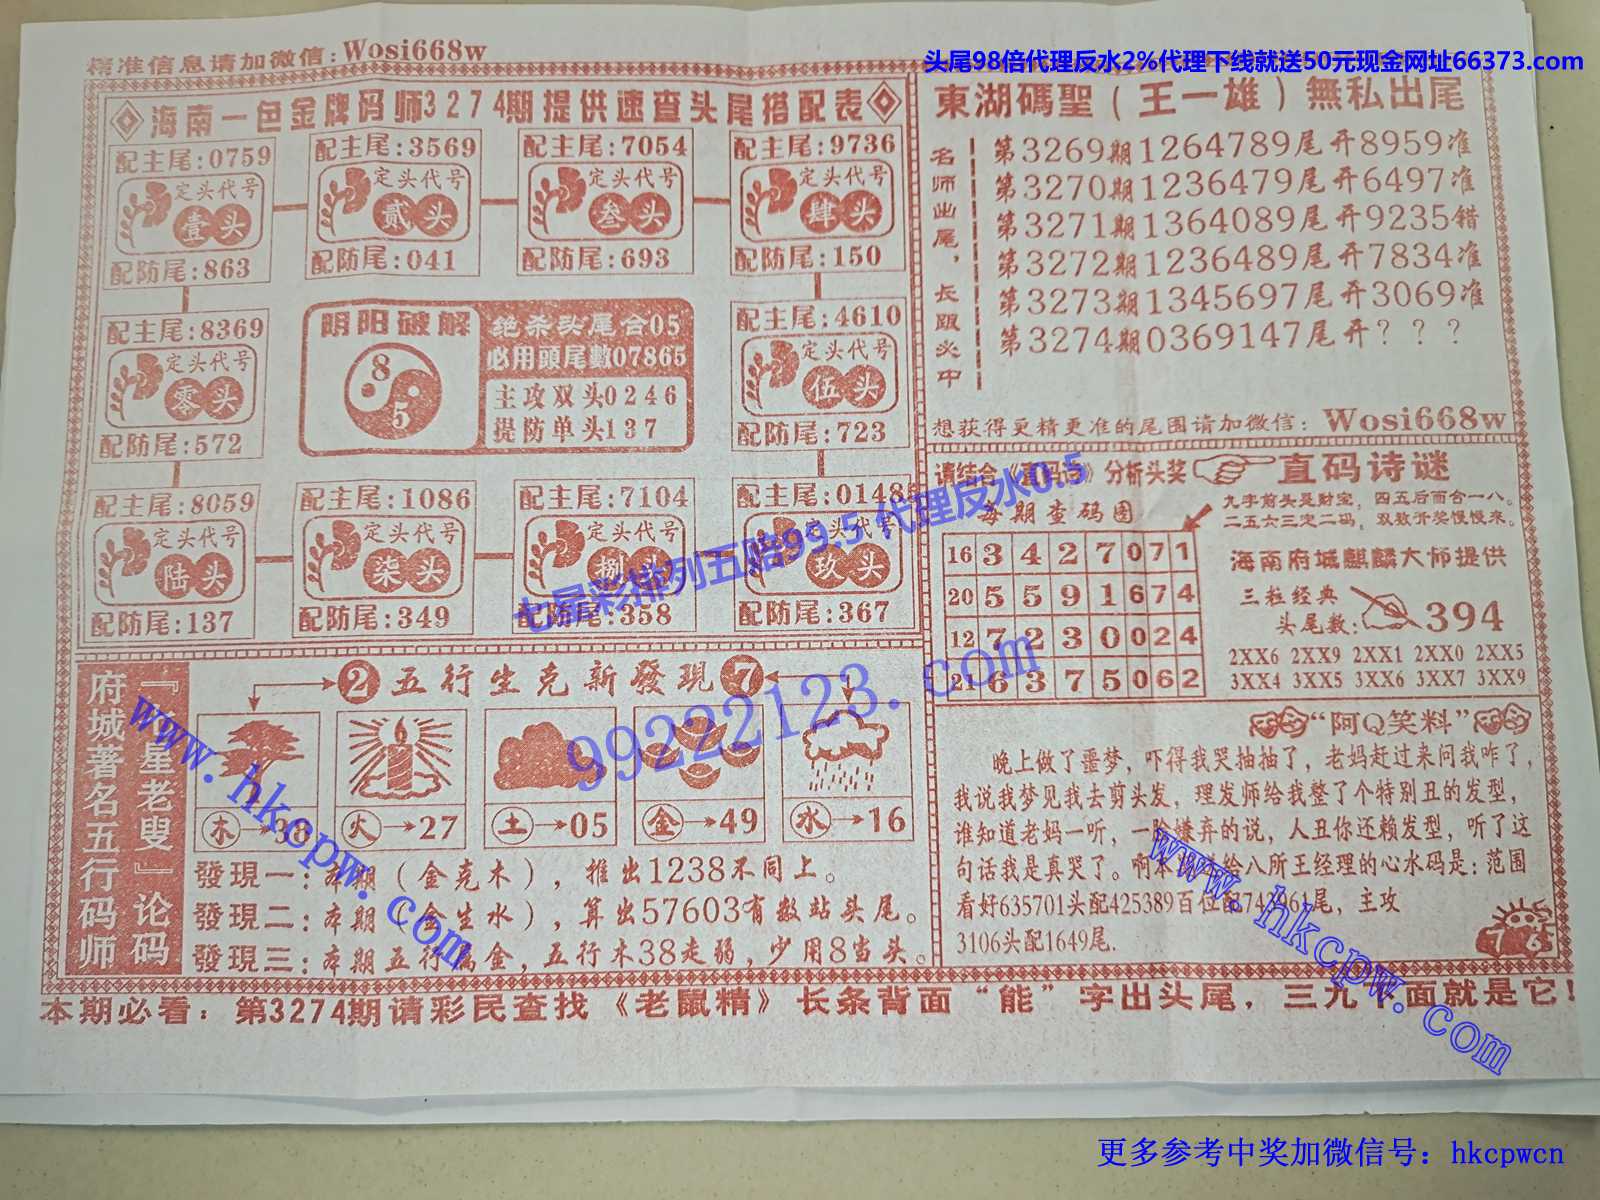 精准信息请加微信：Wosi668w
头尾98倍代理反水2%代理下线就送50元现金网址66373.com
海南一色金牌码师3274期提供速查头尾搭配表
配主尾:0759
定头代号
壹头
配防尾:863
配主尾:3569
定头代号
贰头
配防尾:041
配主尾:7054
定头代号
叁头
配防尾:693
配主尾:9736
定头代号
肆头
配防尾:150
配主尾:8369
定头代号
零头
配防尾:572
阴阳破解
8
5
绝杀头尾合05
必用頭尾數07865
主攻双头0246
提防单头137
配主尾:4610
定头代号
伍头
配防尾:723
配主尾:8059
定头代号
陆头
配防尾:137
配主尾:1086
定头代号
柒头
配防尾:349
配主尾:7104
定头代号
捌头
配防尾:358
配主尾:0148
定头代号
玖头
配防尾:367
東湖碼聖（王一雄）無私出尾
名师出尾，长跟必中
第3269期1264789尾开8959准
第3270期1236479尾开6497准
第3271期1364089尾开9235错
第3272期1236489尾开7834准
第3273期1345697尾开3069准
第3274期0369147尾开？？？
想获得更精更准的尾图请加微信：Wosi668w
请结合《直码诗》分析头奖
直码诗谜
每期查码图
九字前头是财宝，四五后而合一八。
二五六三定二码，双数开奖慢慢来。
16 3 4 2 7 0 7 1
20 5 5 9 1 6 7 4
12 7 2 3 0 0 2 4
21 6 3 7 5 0 6 2
海南府城麒麟大师提供
三粒经典
头尾数：394
2XX6 2XX9 2XX1 2XX0 2XX5
3XX4 3XX5 3XX6 3XX7 3XX9
府城著名五行码师
『寿星老叟』论码
2 五行生克新發現 7
木→38
火→27
土→05
金→49
水→16
發現一：本期（金克木），推出1238不同上。
發現二：本期（金生水），算出57603有数站头尾。
發現三：本期五行属金，五行木38走弱，少用8当头。
“阿Q笑料”
晚上做了噩梦，吓得我哭抽抽了，老妈赶过来问我咋了，
我说我梦见我去剪头发，理发师给我整了个特别丑的发型，
谁知道老妈一听，一脸嫌弃的说，人丑你还赖发型，听了这
句话我是真哭了。啊本期给八所王经理的心水码是：范围
看好635701头配425389百位配742961尾，主攻
3106头配1649尾.
7 6
本期必看：第3274期请彩民查找《老鼠精》长条背面“能”字出头尾，三九平面就是它！
七星彩排列五赔99.5 代理反水0.5
99222123.com
www.hkcpw.com
www.hkcpw.com
更多参考中奖加微信号：hkcpwcn